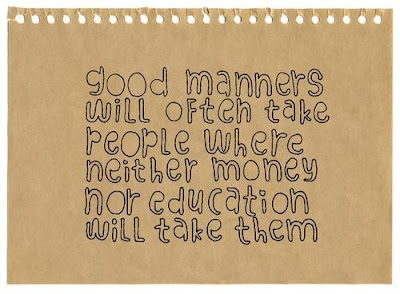 good manners
will often take
people where
neither money
nor education
will take them